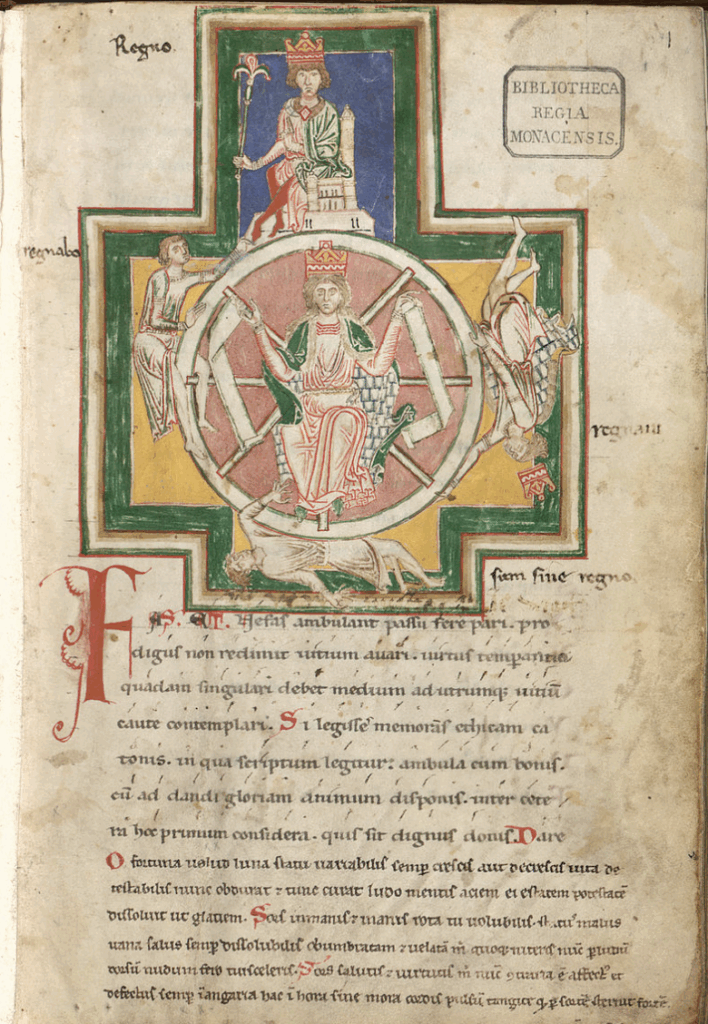 Regno.
1
BIBLIOTHECA
REGIA
MONACENSIS.
regnabo
regnaui
sum sine regno.
FAS. ET. Nefas ambulant passu fere pari. pro
digus non redimit uitium auari. uirtus temperantia
quadam singulari debet medium ad utrumq; uitiū
caute contemplari. Si legisse memoras ethicam ca
tonis. in qua scriptum legitur: ambula cum bonis.
cū ad dandi gloriam animum disponis. inter cete
ra hoc primum considera. quis sit dignus donis. Dare
O fortuna uelud luna statu uariabilis semp crescis aut decrescis uita de
testabilis nunc obdurat & tunc curat ludo mentis aciem egestatem potestatē
dissoluit ut glatiem. Sors inmanis & inanis rota tu uolubilis. statꝰ malus
uana salus semp dissolubilis obumbratam & uelatam m̄ quoq; niteris nūc p ludum
dorsum nudum fero tui sceleris. Sors salutis & uirtutis m̄ nūc ꝯtraria ē affectꝰ et
defectus semp ī angaria hac ī hora sine mora cordis pulsum tangite q̇ p sortē sternit fortē.